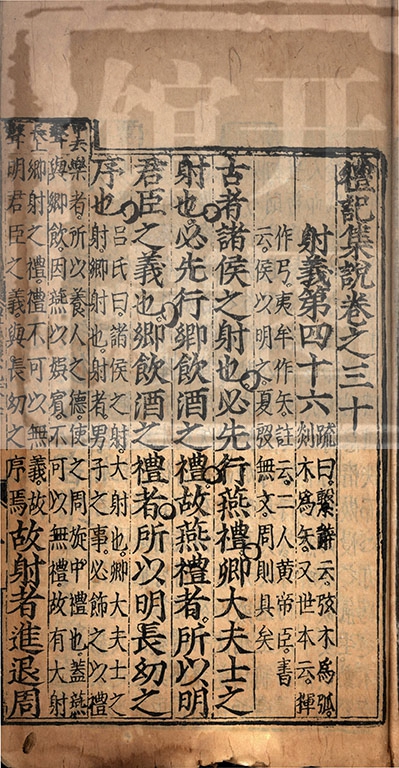 禮記集說卷之三十
射義第四十六
疏曰繫辭云弦木爲弧
剡木爲矢又世本云揮
作弓夷牟作矢註云二人黃帝臣書
云侯以明之夏殷無文周則具矣
古者諸侯之射也必先行燕禮卿大夫士之
射也必先行鄉飲酒之禮故燕禮者所以明
君臣之義也鄉飲酒之禮者所以明長幼之
序也
呂氏曰諸侯之射大射也卿大夫士之
射鄉射也射者男子之事必飾之以禮
中去聲
樂者所以養人之德使之周旋中禮也蓋燕
與鄉飲因燕以娛賓不可以無禮故有大射
長上聲
鄉射之禮禮不可以無義故
明君臣之義與長幼之序焉
故射者進退周